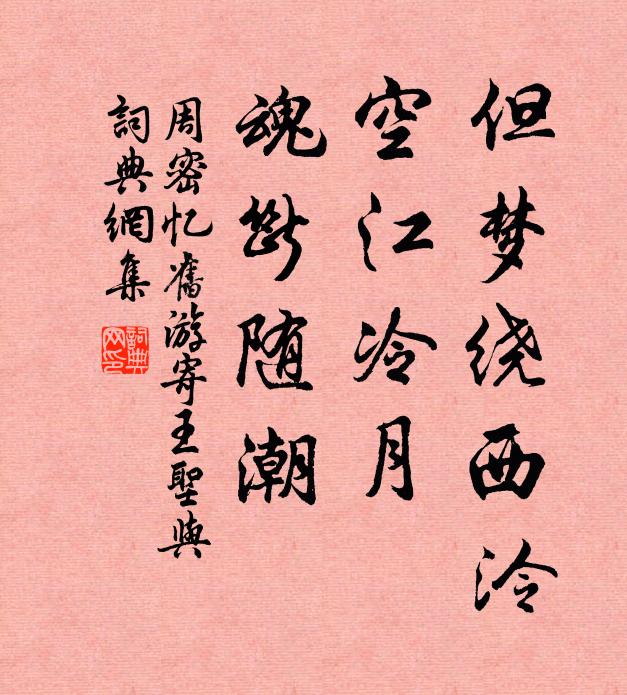 但梦绕西泠
空江冷月
魂断随潮
周密忆舊游寄王聖與
詞典網集
詞典网印